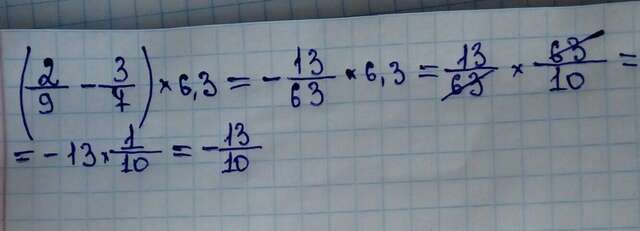 (2/9 - 3/7) × 6,3 = - 13/63 × 6,3 = 13/63 × 63/10 =
= - 13 × 1/10 = - 13/10